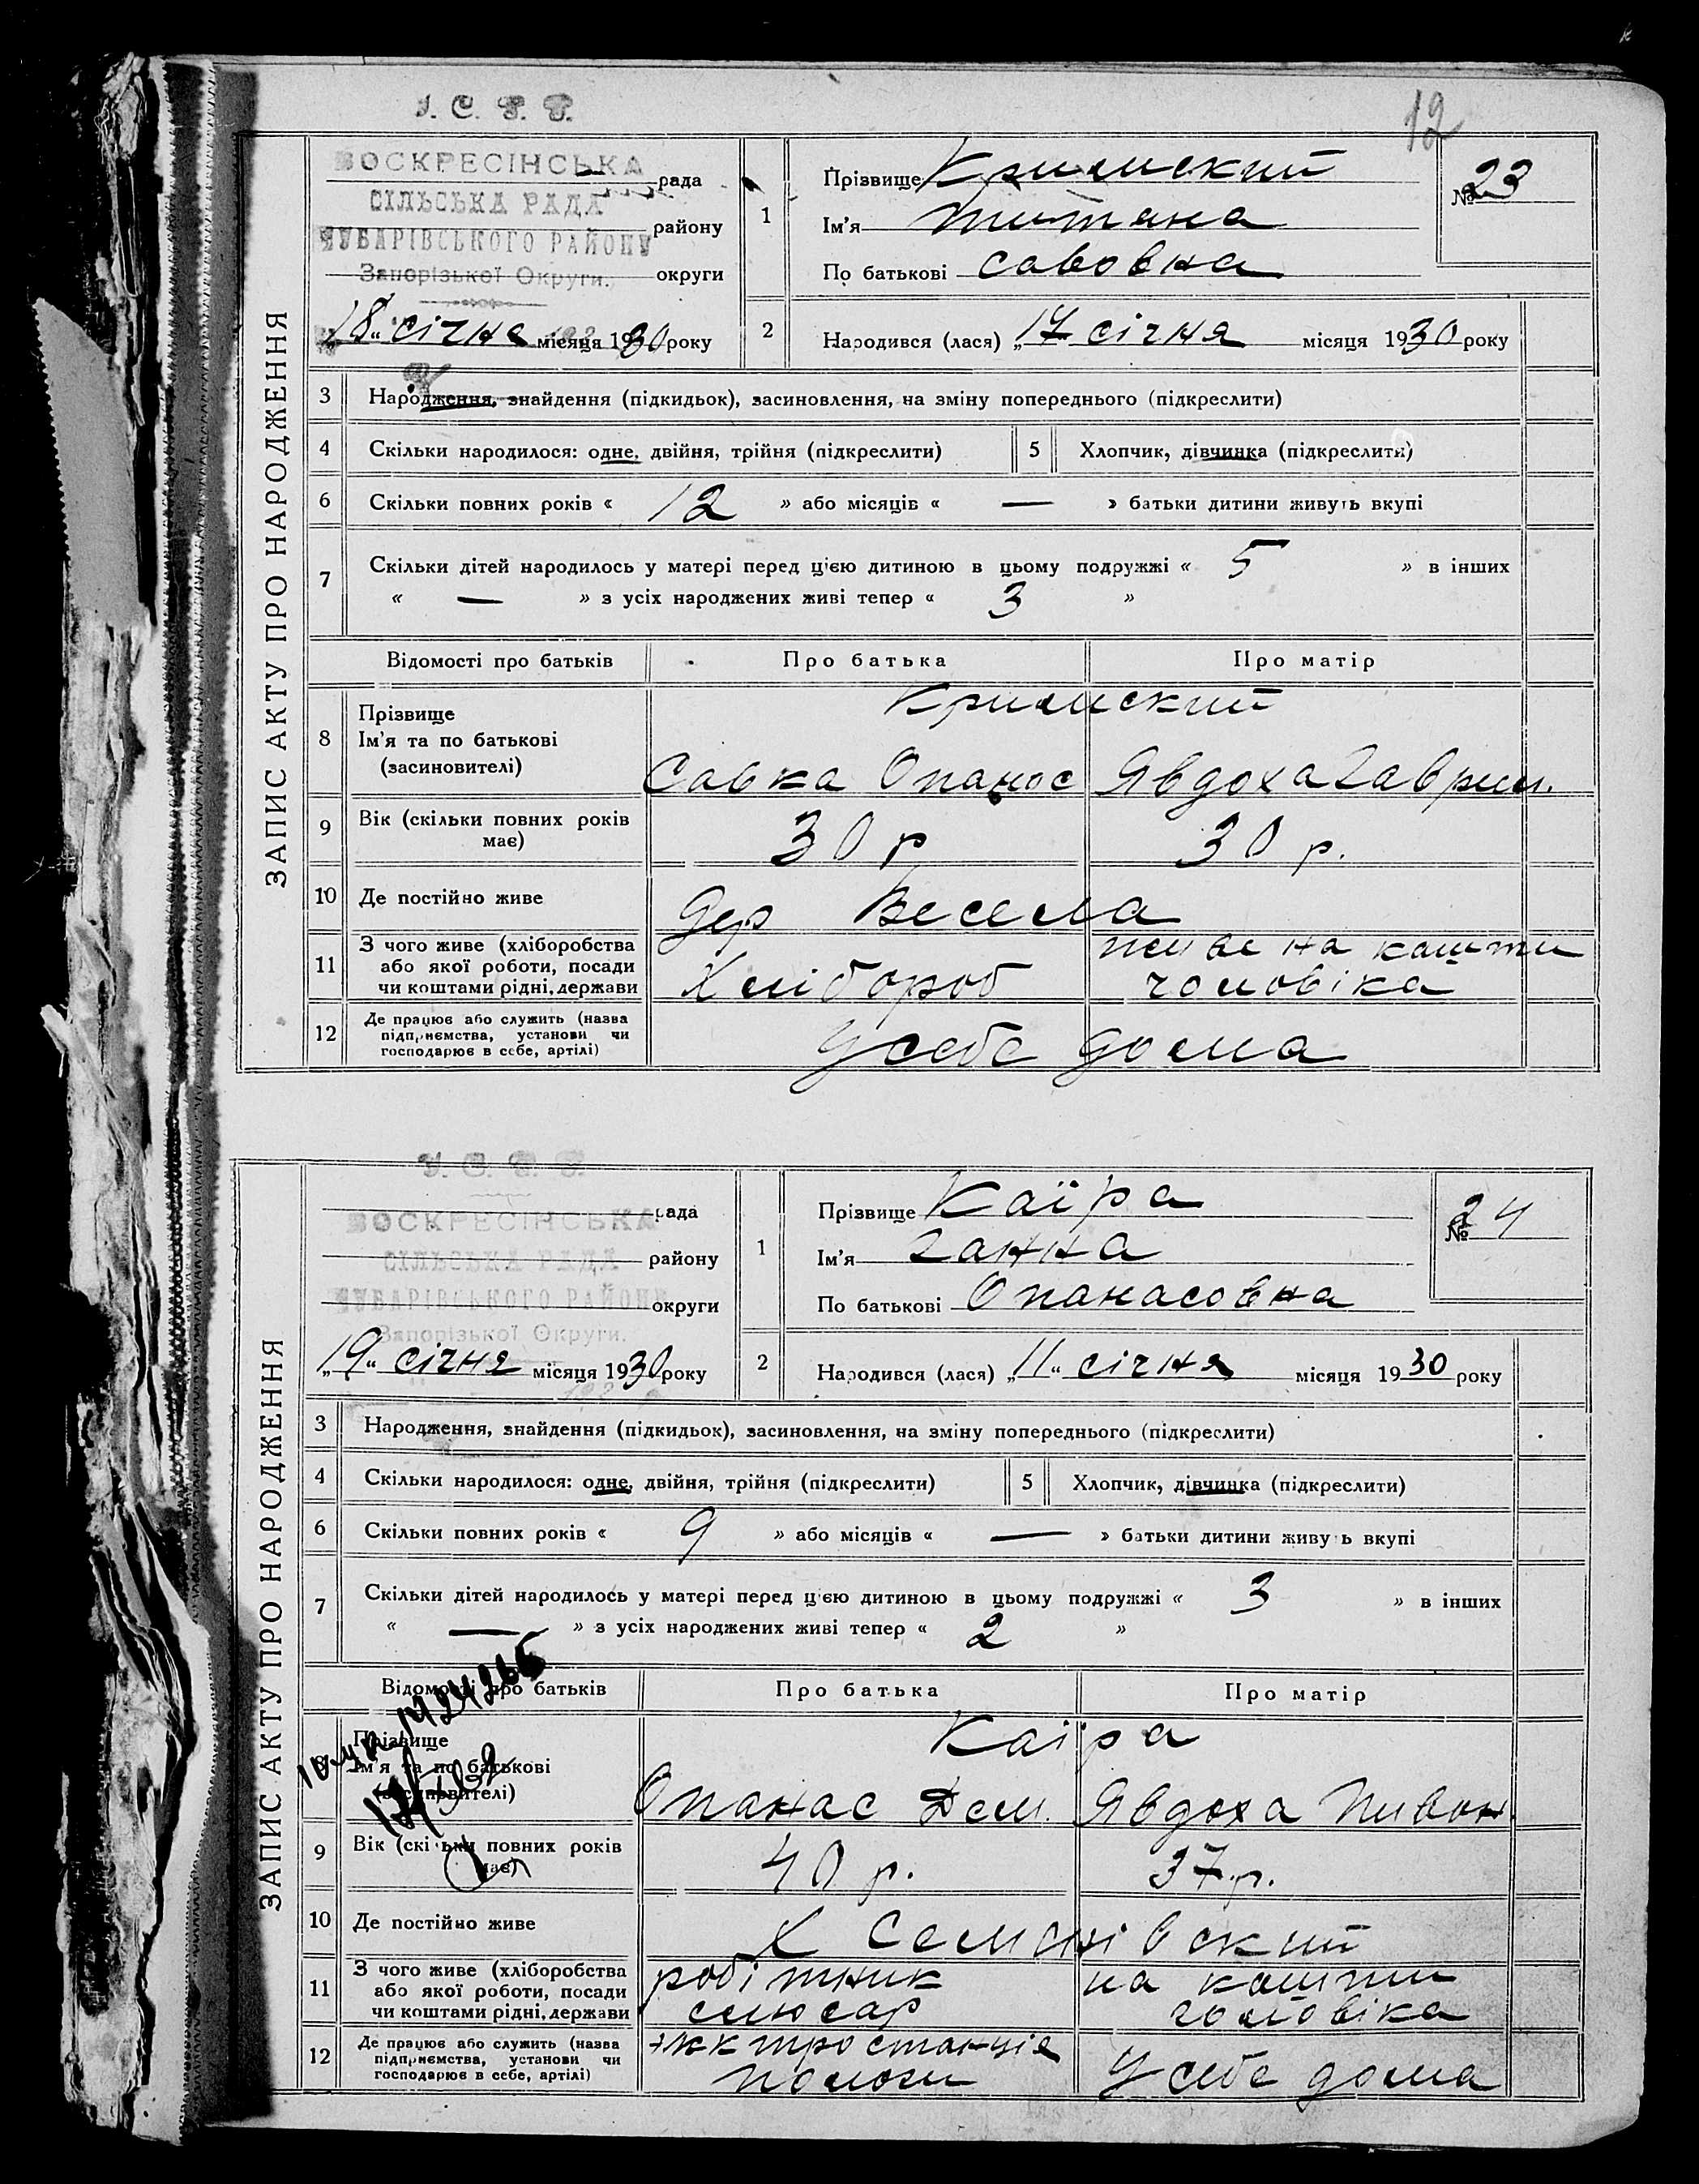 12
У. С. Р. Р.
ВОСКРЕСІНСЬКА рада
СІЛЬСЬКА РАДА району
ЧУБАРІВСЬКОГО РАЙОНУ
Запорізької Округи. округи
„18“ січня місяця 1930 року
1 Прізвище Кримский
Ім'я Титана
По батькові Савовна
№ 23
2 Народився (лася) „17 січня місяця 1930 року
ЗАПИС АКТУ ПРО НАРОДЖЕННЯ
3 Народження, знайдення (підкидьок), засиновлення, на зміну попереднього (підкреслити)
4 Скільки народилося: одне, двійня, трійня (підкреслити) 5 Хлопчик, дівчинка (підкреслити)
6 Скільки повних років « 12 » або місяців « — » батьки дитини живуть вкупі
7 Скільки дітей народилось у матері перед цією дитиною в цьому подружжі « 5 » в інших
« — » з усіх народжених живі тепер « 3 »
Відомості про батьків Про батька Про матір
8 Прізвище Кримский
Ім'я та по батькові
(засиновителі) Савка Опанас Явдоха Гаврил.
9 Вік (скільки повних років має) 30 р 30 р.
10 Де постійно живе дер Весела
11 З чого живе (хліборобства або якої роботи, посади чи коштами рідні, держави Хлібороб живе на кошти чоловіка
12 Де працює або служить (назва підприємства, установи чи господарює в себе, артілі) У себе дома
У. С. Р. Р.
ВОСКРЕСІНСЬКА рада
СІЛЬСЬКА РАДА району
ЧУБАРІВСЬКОГО РАЙОНУ округи
Запорізької Округи.
„19“ січня місяця 1930 року
1 Прізвище Каїра
Ім'я Ганна
По батькові Опанасовна
№ 24
2 Народився (лася) „11“ січня місяця 1930 року
ЗАПИС АКТУ ПРО НАРОДЖЕННЯ
3 Народження, знайдення (підкидьок), засиновлення, на зміну попереднього (підкреслити)
4 Скільки народилося: одне, двійня, трійня (підкреслити) 5 Хлопчик, дівчинка (підкреслити)
6 Скільки повних років « 9 » або місяців « — » батьки дитини живуть вкупі
7 Скільки дітей народилось у матері перед цією дитиною в цьому подружжі « 3 » в інших
« — » з усіх народжених живі тепер « 2 »
Відомості про батьків Про батька Про матір
8 Прізвище Каіра
Ім'я та по батькові
(засиновителі) Опанас Дем. Явдоха Пивон.
9 Вік (скільки повних років має) 40 р. 37 р.
10 Де постійно живе Х Семенівский
11 З чого живе (хліборобства або якої роботи, посади чи коштами рідні, держави робітник слюсар на кошти чоловіка
12 Де працює або служить (назва підприємства, установи чи господарює в себе, артілі) Пологи У себе дома